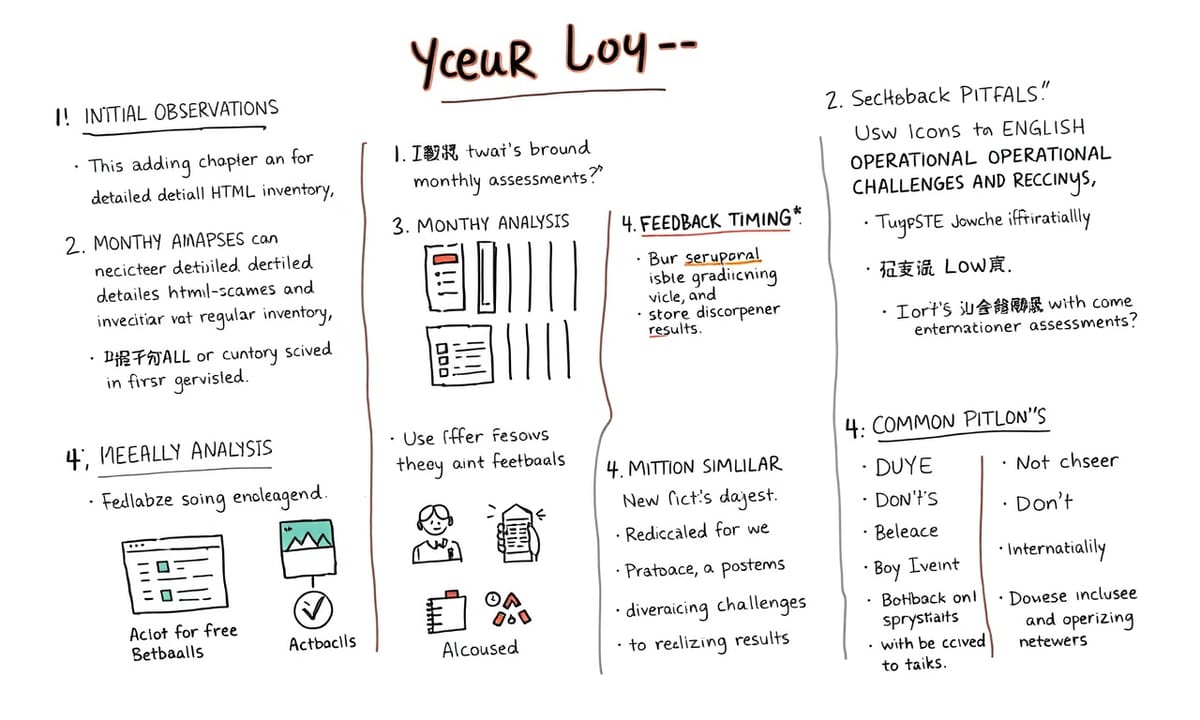 YceuR Loy--
1! INITIAL OBSERVATIONS
· This adding chapler an for
detailed detiall HTML inventory,
2. MONTHY AMAPSES can
necicteer detiiled. dertiled
detailes html-scames and
invecitiar vat regular inventory,
ALL or cuntory scived
in firsr gervisled.
4;, MEEALLY ANALYSIS
· Fedlabze soing enoleagend.
Aclot for free
Betbaalls
Actbaclls
1. twat's bround
monthly assessments?"
3. MONTHY ANALYSIS
· Use iffer Fesows
theey aint feetbaals
Alcoused
4. FEEDBACK TIMING*.
· Bur seruporal
isble gradiicning
vicle, and
· store discorpener
results.
4. MITTION SIMLILAR
New lict's dajest.
· Rediccaled for we
· Pratoace, a postems
· diveraicing challenges
· to reelizing results
2. Sectoback PITFALS."
Usw Icons ta ENGLISH
OPERATIONAL OPERATIONAL
CHALLENGES AND RECCINYS,
· TuypSTE Jowche iffiratiallly
LOW
· Iort's with come
enternationer assessments?
4: COMMON PITLON"S
· DUYE
· DON'T'S
· Beleace
· Boy Iveint
· Botlback onl
sprystiaits
· with be ccived
to taiks.
· Not chseer
· Don't
· Internatialily
· Douese inclusee
and operizing
netewers